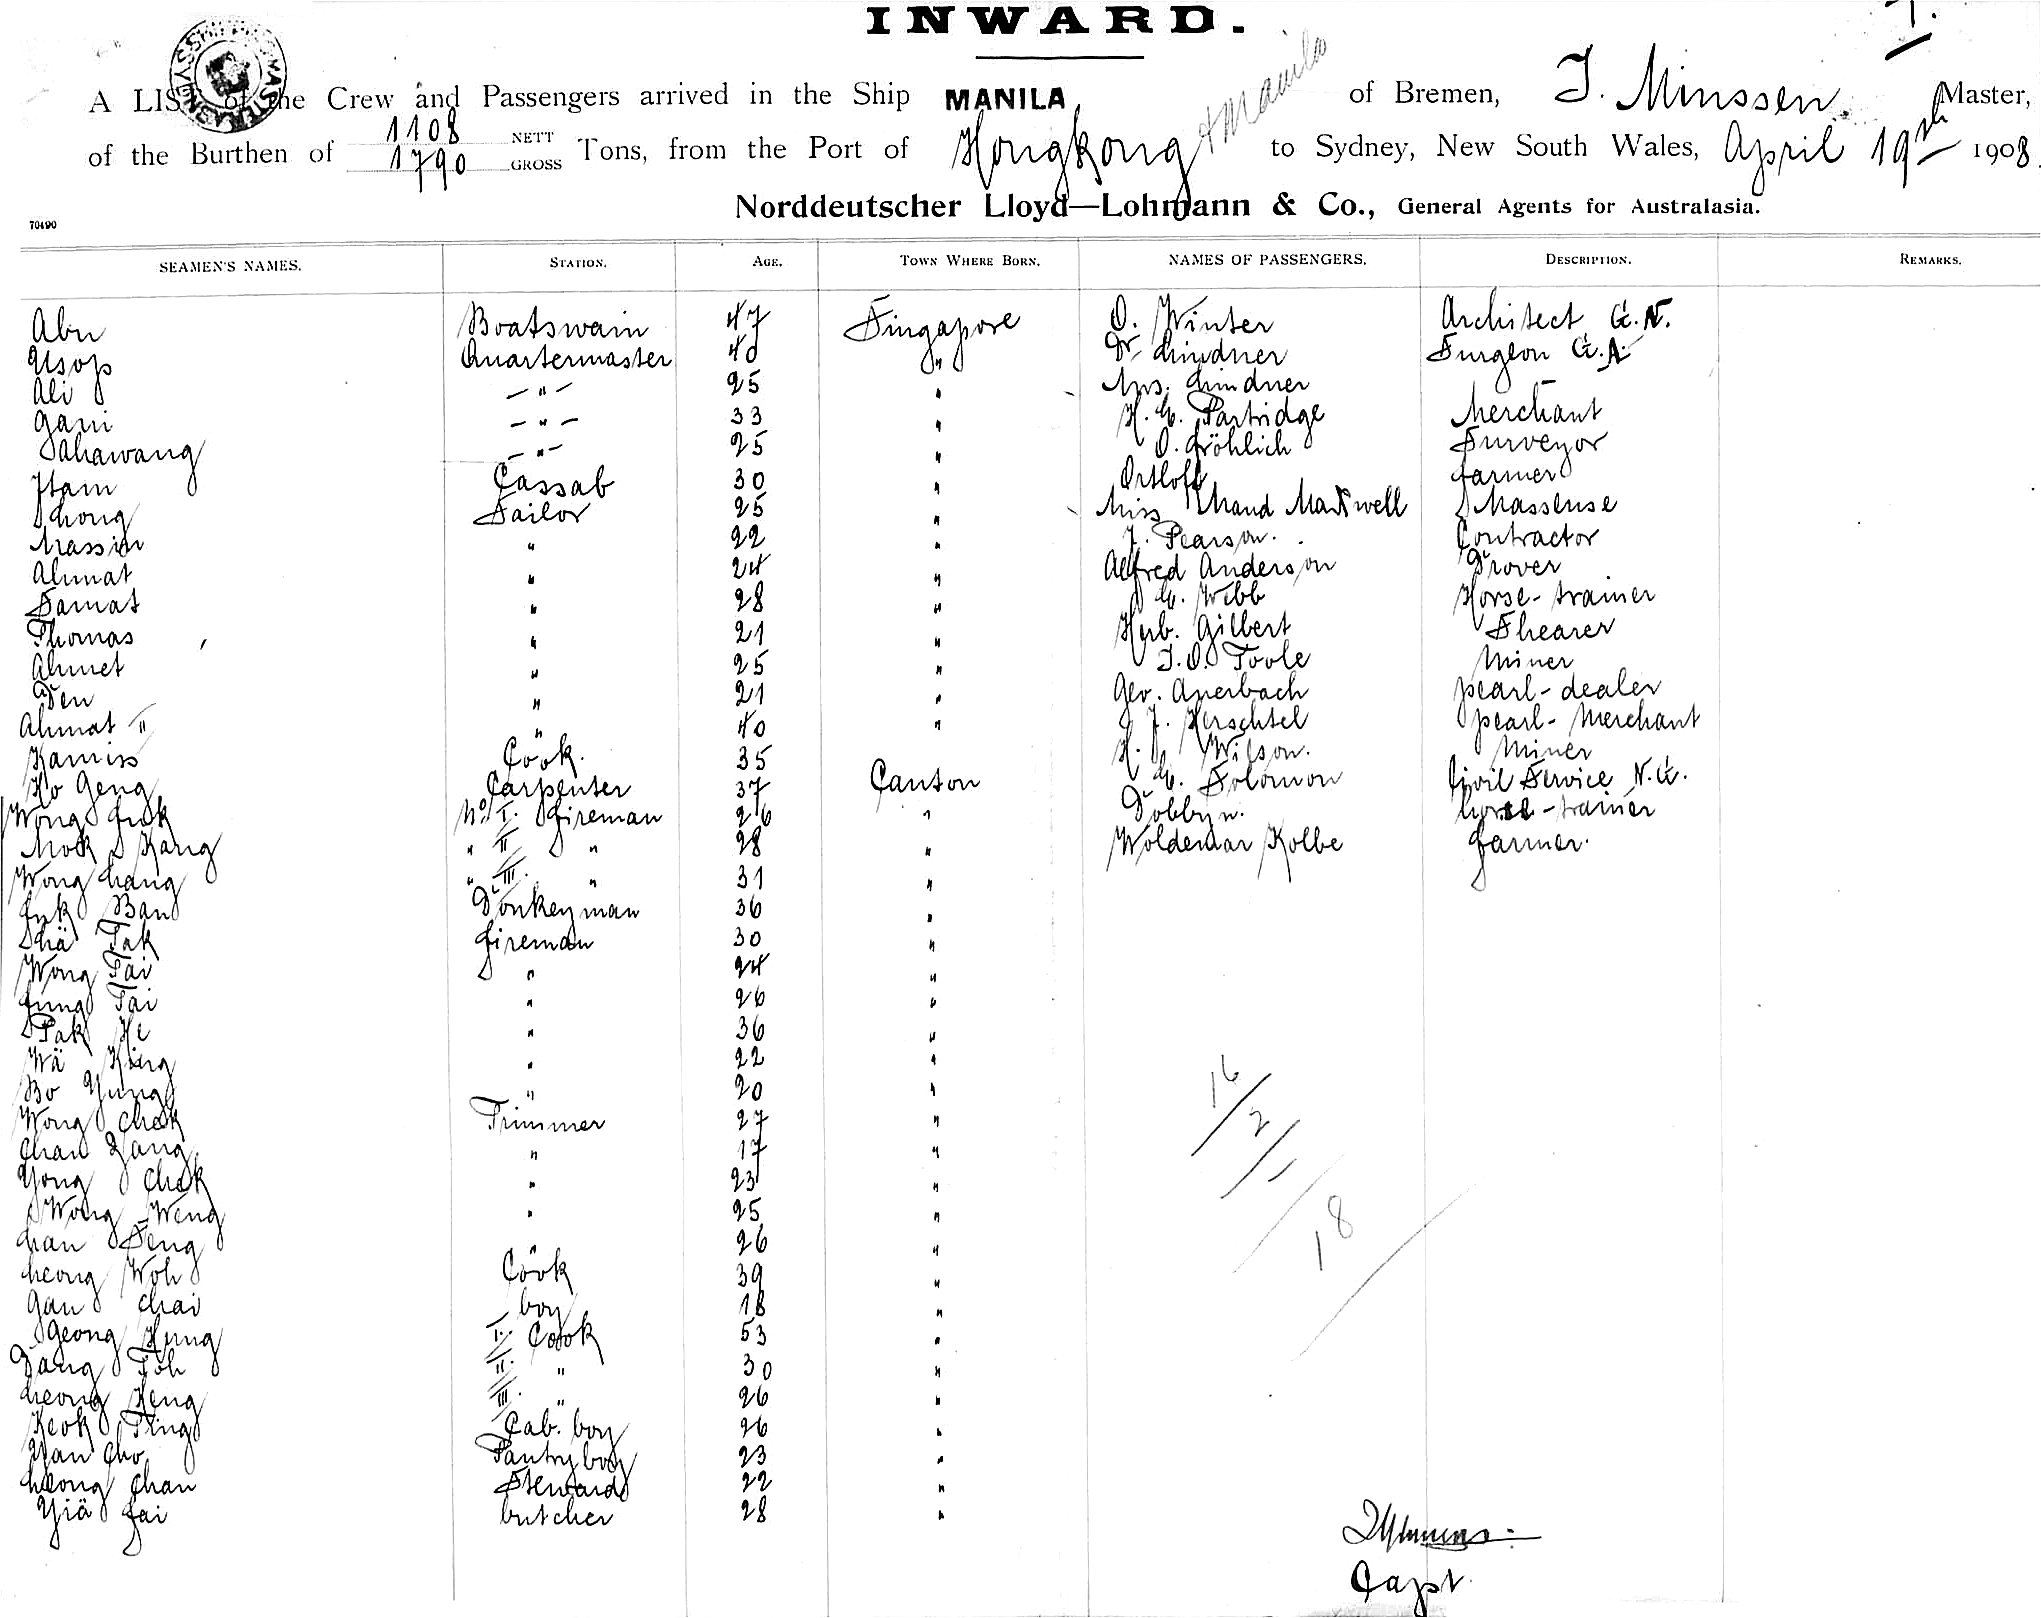 INWARD.
A LIST of the Crew and Passengers arrived in the Ship MANILA of Bremen, J. Minssen Master,
of the Burthen of 1108 NETT 1790 GROSS Tons, from the Port of Hongkong & Manila to Sydney, New South Wales, April 19th 1908.
Norddeutscher Lloyd—Lohmann & Co., General Agents for Australasia.
70490
SEAMEN'S NAMES. STATION. AGE. TOWN WHERE BORN. NAMES OF PASSENGERS. DESCRIPTION. REMARKS.
Abu Boatswain 47 Singapore O. Winter Architect G.N.
Usop Quartermaster 40 " Dr. Lindner Surgeon
Ali —"— 25 " Mrs. Lindner
Gani —"— 33 " Partridge Merchant
Sahawang —"— 25 " O. Fröhlich Surveyor
Itam Cassab 30 " Ortloff farmer
Sailor 25 " Miss Maud Maxwell Masseuse
Massin " 22 " J. Pearson. Contractor
Ahmat " 24 " Alfred Anderson Drover
Samat " 28 " Webb Horse-trainer
Thomas " 21 " Herb. Gilbert Shearer
Ahmet " 25 " J.O. Toole Miner
Den " 21 " Geo. Auerbach pearl-dealer
Ahmat II " 40 " J. Herschtel pearl-Merchant
Kamis Cook. 35 H. Wilson. Miner
Ho Geng Carpenter 37 Canton Solomon Civil Service N.G.
Wong No I. fireman 26 " Dobbyn. horse-trainer
Mok Kang " II " 28 " Woldemar Kolbe farmer.
Wong " III. " 31 "
Ban Donkeyman 36 "
Tak fireman 30 "
Wong Tai " 24 "
Tai " 26 "
Pak He " 36 "
Wä King " 22 "
Bo Yung " 20 "
Wong Chok Trimmer 27 "
Chan Yang " 17 "
Yong Chok " 23 "
Wong Weng " 25 "
Seng " 26 "
Woh Cook 39 "
Gan Chai boy 18 "
Geong Hung I. Cook 53 "
Toh II. " 30 "
Heng III. " 26 "
Keok Ting Cab. boy 26 "
Yan Cho Pantryboy 23 "
Chan Steward 22 "
Yiä Fai butcher 28 "
16
2
18
Capt.